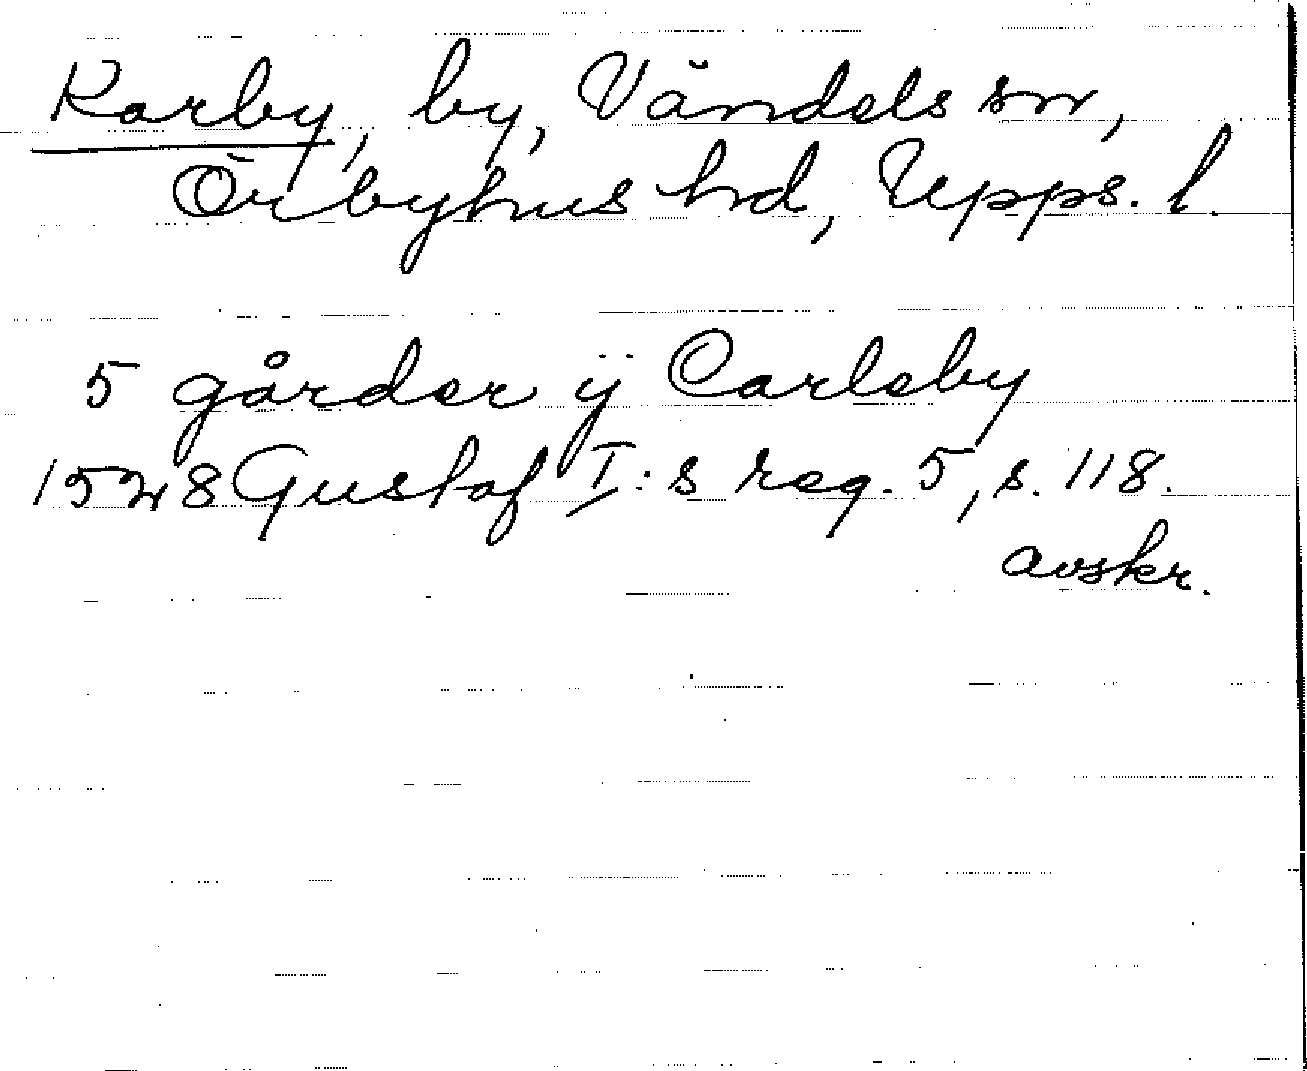 Karby, by, Vändels sn,
Örbyhus hd, Upps. l.
5 gårder ÿ Carleby
1528 Gustaf I:s reg. 5, s. 118.
avskr.